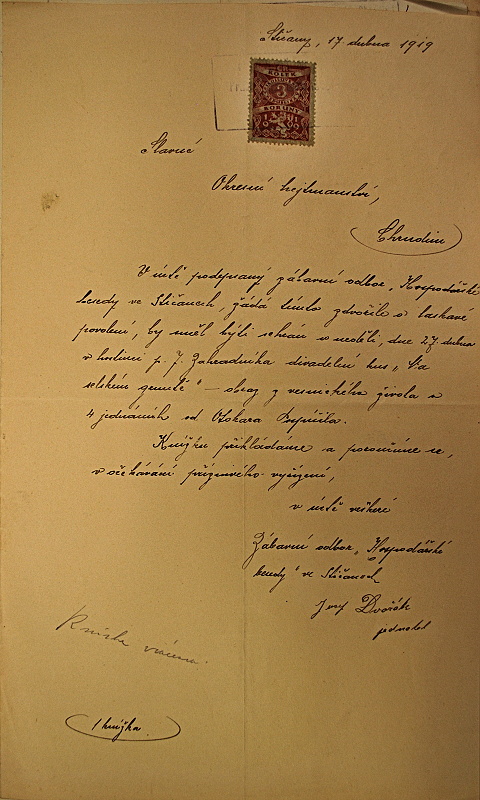 Stičany, 17 dubna 1919
KOLEK
3
KORUNY
Slavné
Okresní hejtmanství,
Chrudim
V úctě podepsaný zábavní odbor „Hospodářské
besedy ve Stičanech, žádá tímto zdvořile o laskavé
povolení, by směl býti sehrán v neděli, dne 27. dubna
v hostinci p. J. Zahradníka divadelní kus „Na
selském gruntě" – obraz z vesnického života o
4 jednáních od Otokara
Knížku přikládáme a poroučíme se,
v očekávání příznivého vyřízení,
v úctě veškeré
Zábavní odbor „Hospodářské
besedy" ve Stičanech
Josef Dvořák
jednatel
Knížka vrácena.
1 knížka.